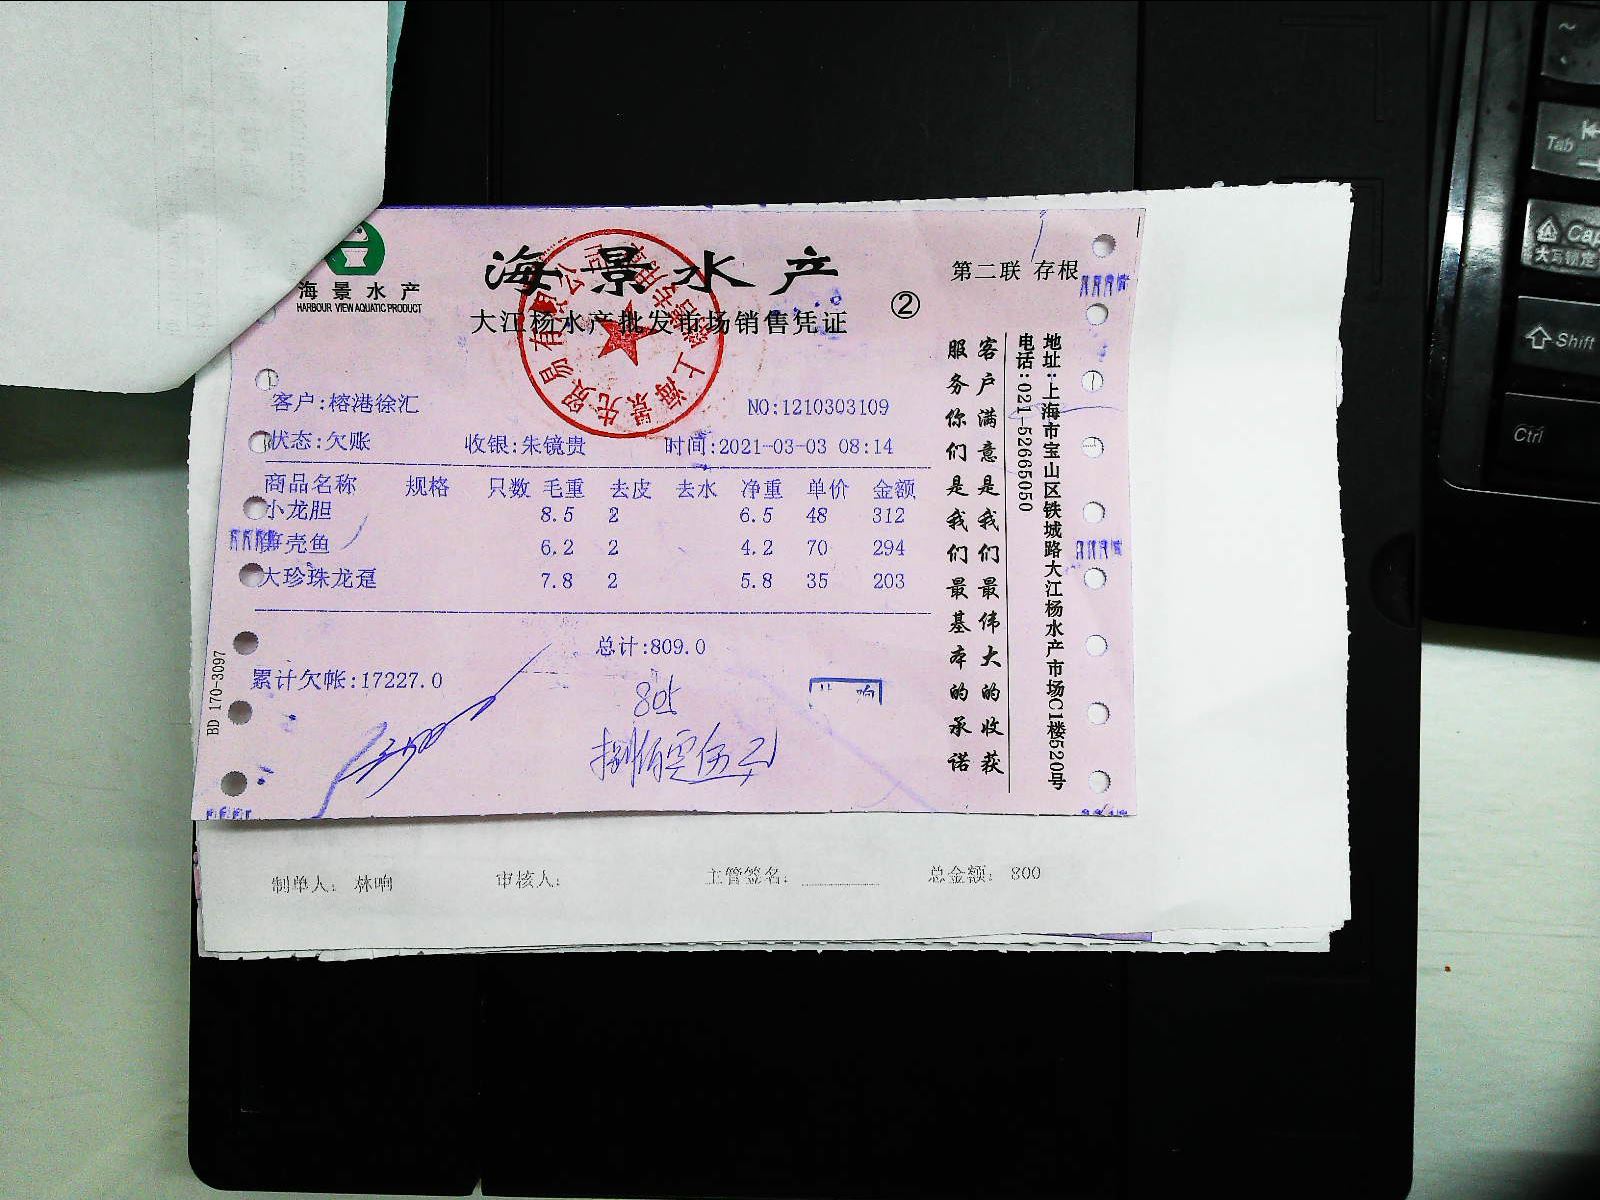 海景水产
HARBOUR VIEW AQUATIC PRODUCT
海景水产
大江杨水产批发市场销售凭证
②
第二联 存根
客户:榕港徐汇
NO:1210303109
状态:欠账 收银:朱镜贵 时间:2021-03-03 08:14
商品名称 规格 只数 毛重 去皮 去水 净重 单价 金额
小龙胆 8.5 2 6.5 48 312
笋壳鱼 6.2 2 4.2 70 294
大珍珠龙趸 7.8 2 5.8 35 203
总计:809.0
累计欠帐:17227.0
805
捌佰零伍元
BD 170-3097
客户满意是我们最伟大的收获
服务你们是我们最基本的承诺
地址:上海市宝山区铁城路大江杨水产市场C1楼520号
电话:021-52665050
制单人: 林响 审核人: 主管签名: 总金额: 800
Tab
Cap
大写锁定
Shift
Ctrl